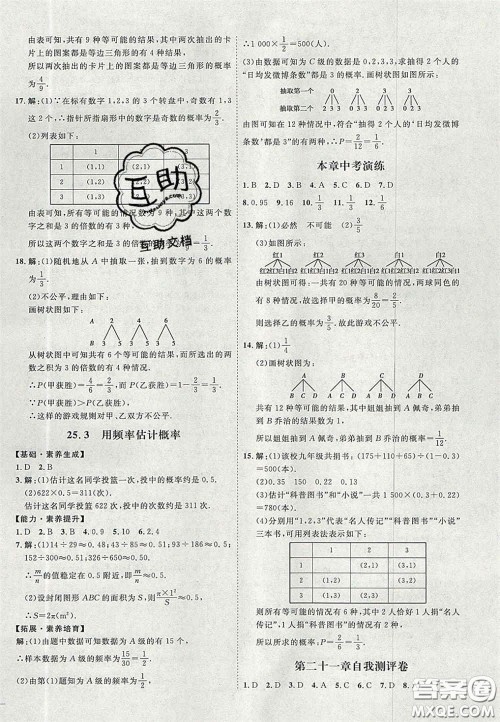 由表可知共有9种等可能的结果,其中两次抽出的卡
片上的图案都是等边三角形的有4种结果,
所以两次抽出的卡片上的图案都是等边三角形的概率
为4/9.
17.解:(1)∵在标有数字1,2,3的3个转盘中,奇数有1,3
这2个,∴指针所指扇形中的数字是奇数的概率为2/3.
(2)列表如下:
1 2 3
1 (1,1) (2,1) (3,1)
2 (1,2) (2,2) (3,2)
3 (1,3) (2,3) (3,3)
由表可知所有等可能的情况数为9种,其中这两个数
字之和是3的倍数的有3种,
所以这两个数字之和是3的倍数的概率为3/9=1/3.
18.解:(1)随机地从A中抽取一张,抽到数字为6的概率
为1/3.
(2)不公平.
画树状图如下:
从树状图中可知共有6个等可能的结果,而所选出的两
数之积为3的倍数的结果有4个.
∴P(甲获胜)=4/6=2/3,而P(乙获胜)=1-2/3=1/3.
∴这样的游戏规则对甲、乙双方不公平.
25.3 用频率估计概率
【基础·素养生成】
1.D 2.B
3.解:(1)估计这名同学投篮一次,投中的概率约是0.5.
(2)622×0.5=311(次).
估计这名同学投篮622次,投中的次数约是311次.
【能力·素养提升】
1.D 2.B 3.B 4.0.9 5.10 6.2,4
7.解:(1)14÷29≈0.48;43÷91≈0.47;93÷186=0.5;
152÷300≈0.51;
∴m/n的值稳定在0.5附近.
(2)设封闭图形ABC的面积为S,根据题意得π×1²/S=0.5,
∴S=2π(m²).
【拓展·素养培育】
解:(1)由题中数据可知样本数据为A级的有15个,
∴样本数据为A级的频率为15/30=1/2.
(2)由(1)题知为A级的频率为1/2,
∴1 000×1/2=500(人).
(3)由数据可知为C级的数据为0,2,3,3,求抽得2个人的
“日均发微博条数”都是3的概率.画树状图如图所示:
抽取第一个 0 2 3 3
抽取第二个 2 3 3 0 3 3 0 2 3 0 2 3
由图可知在12种情况中,符合“抽得2个人的‘日均发微博
条数’都是3”的情况有2种,∴P=2/12=1/6.
本章中考演练
1.B 2.D 3.A 4.B 5.C 6.D 7.D
8.0.95 9.16 10.4/9 11.1/3 12.1/6
13.解:(1)必然 不可能 (2)3/4
(3)如图所示:
由树状图可知,一共有20种可能的情况,两球同色的
有8种情况,故选择甲的概率为8/20=2/5,
则选择乙的概率为3/5,故此游戏不公平.
14.解:(1)1/4
(2)画树状图为:
共有12种等可能的结果数,其中姐姐抽到A佩奇,弟
弟抽到B乔治的结果数为1,所以姐姐抽到A佩奇,弟
弟抽到B乔治的概率为1/12.
15.解:(1)该校九年级共捐书:(175+110+65)÷(1-30%)
=500(本).
(3)估计“科普图书”和“小说”一共1 500×
=750(本).
(4)分别用“1,2,3”代表“名人传记”“科普图书”“小说”
三本书,可用列表法表示如下:
1 2 3
1 (2,1) (3,1)
2 (1,2) (3,2)
3 (1,3) (2,3)
所以所有等可能的情况有6种,其中2人恰好1人捐“名
人传记”,1人捐“科普图书”的情况有2种,
所以所求的概率:P=2/6=1/3.
第二十一章自我测评卷
1.D 2.B 3.D 4.D 5.A 6.B 7.B 8.
互助
互助文档
答案圈
MXQE.COM